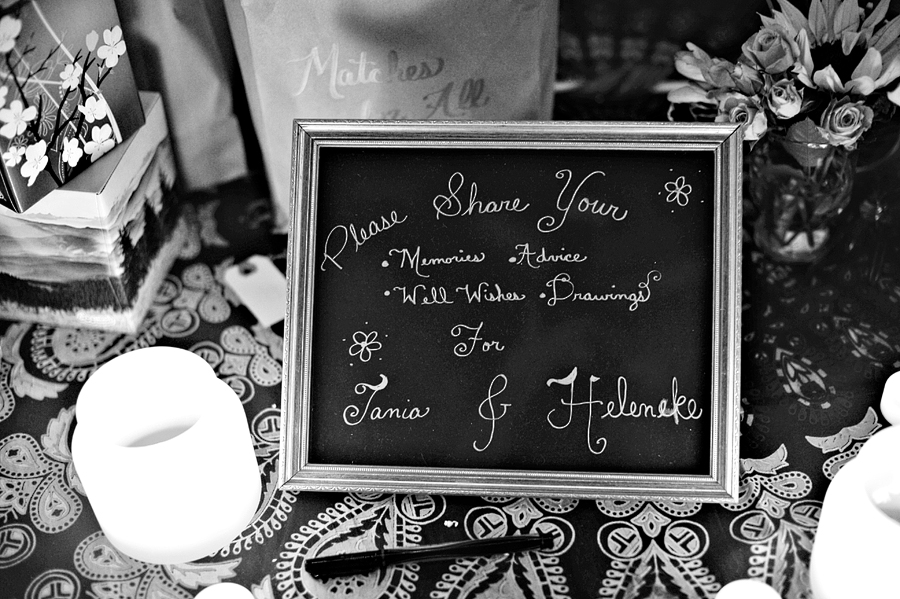 Matches
for All
Please Share Your
• Memories • Advice
• Well Wishes • Drawings
For
Tania & Heleneke